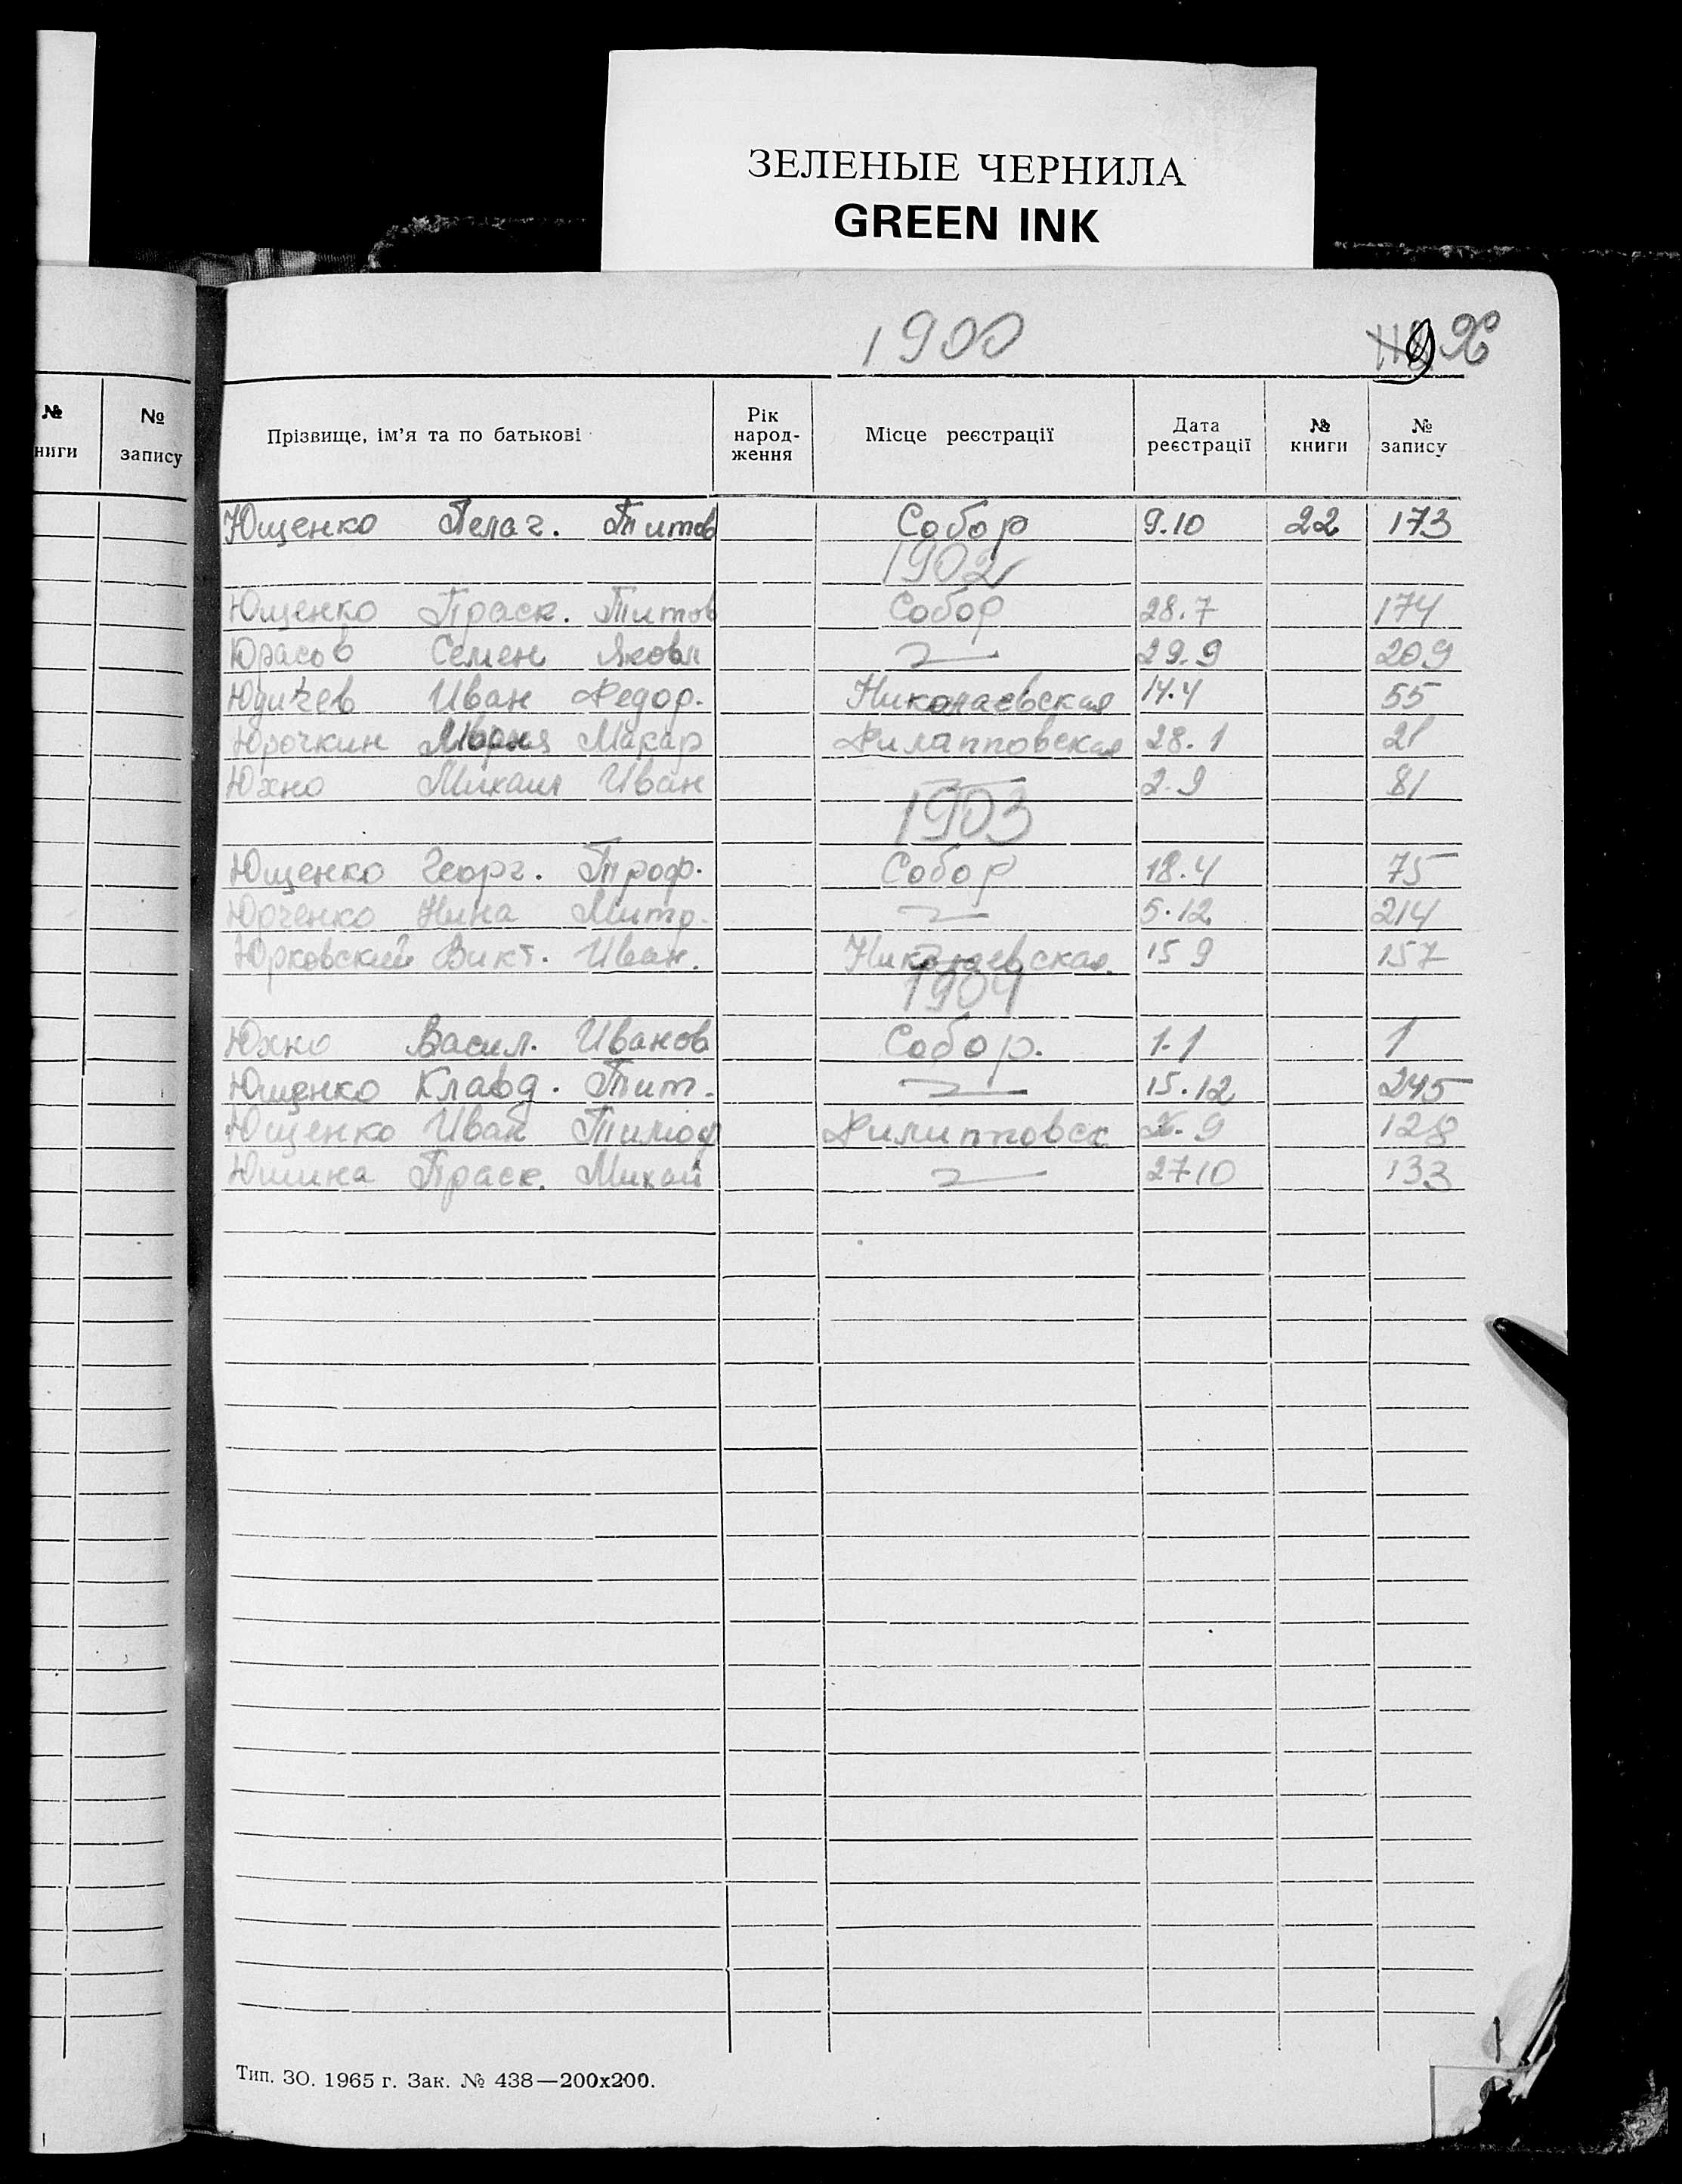 ЗЕЛЕНЫЕ ЧЕРНИЛА
GREEN INK
1900
96
№ книги № запису
Прізвище, ім'я та по батькові Рік народ-ження Місце реєстрації Дата реєстрації № книги № запису
Ющенко Пелаг. Титов Собор 9.10 22 173
1902
Ющенко Праск. Титов Собор 28.7 174
Юрасов Семен Яковл 29.9 209
Юдичев Иван Федор. Николаевская 14.4 55
Юрочкин Мария Макар Филапповская 28.1 21
Юхно Михаил Иван 2.9 81
1903
Ющенко Георг. Троф. Собор 18.4 75
Юрченко Нина Митр. 5.12 214
Юрковский Викт. Иван. Николаевская 15 9 157
1904
Юхно Васил. Иванов Собор. 1.1 1
Ющенко Клавд. Тит. 15.12 245
Ющенко Иван Тимоф Филипповск 9 128
Юшина Праск. Михай 27 10 133
Тип. ЗО. 1965 г. Зак. № 438—200х200.